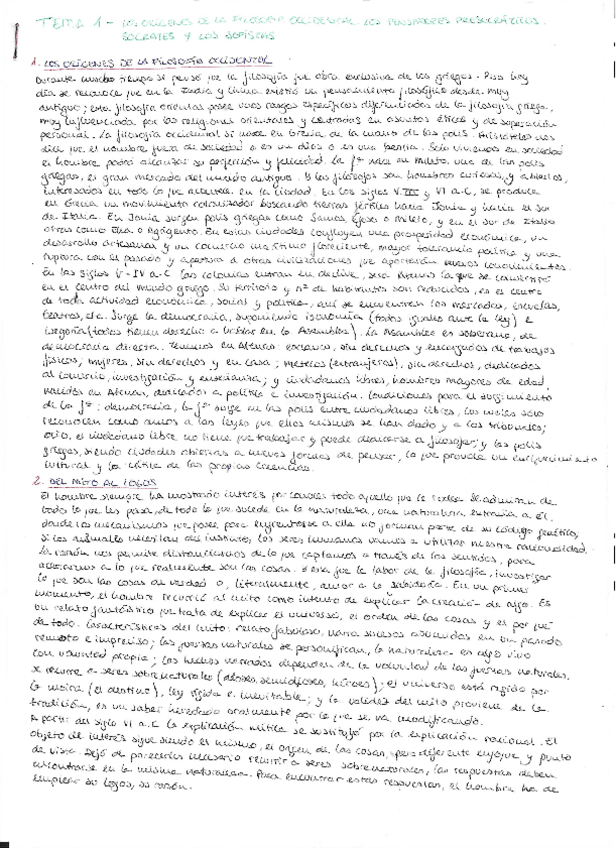 TEMA 1 - LOS ORÍGENES DE LA FILOSOFÍA OCCIDENTAL. LOS PENSADORES PRESOCRÁTICOS.
SÓCRATES Y LOS SOFISTAS
1. LOS ORÍGENES DE LA FILOSOFÍA OCCIDENTAL
Durante mucho tiempo se pensó que la filosofía fue obra exclusiva de los griegos. Pero hoy
día se reconoce que en la India y China existió un pensamiento filosófico desde muy
antiguo; esta filosofía oriental posee unos rasgos específicos diferenciados de la filosofía griega,
muy influenciada por las religiones orientales y centrados en asuntos éticos y de superación
personal. La filosofía occidental sí nace en Grecia de la mano de las polis. Aristóteles nos
dice que el hombre fuera de sociedad o es un dios o es una bestia. Sólo viviendo en sociedad
el hombre podrá alcanzar su perfección y felicidad. La fª nace en Mileto, una de las polis
griegas, el gran mercado del mundo antiguo. Y los filósofos son hombres curiosos, y abiertos,
interesados en todo lo que acontece en la ciudad. En los siglos VIII y VI a.C, se produce
en Grecia un movimiento colonizador buscando tierras fértiles hacia Jonia y hacia el sur
de Italia. En Jonia surgen polis griegas como Samos, Éfeso o Mileto, y en el sur de Italia
otras como Elea o Agrigento. En estas ciudades confluyen una prosperidad económica, un
desarrollo artesanal y un comercio marítimo floreciente, mayor tolerancia política y una
ruptura con el pasado y apertura a otras civilizaciones que aportarán nuevos conocimientos.
En los siglos V-IV a.C las colonias entran en declive, será Atenas la que se convierta
en el centro del mundo griego. Su territorio y nº de habitantes son reducidos, es el centro
de toda actividad económica, social y política. Aquí se encuentran los mercados, escuelas,
teatros, etc. Surge la democracia, suponiendo isonomía (todos iguales ante la ley) e
isegoría (todos tienen derecho a hablar en la Asamblea). La Asamblea es soberana, de
democracia directa. Tenemos en Atenas: esclavos, sin derechos y encargados de trabajos
físicos; mujeres, sin derechos y en casa; metecos (extranjeros), sin derechos, dedicados
al comercio, investigación y enseñanza; y ciudadanos libres, hombres mayores de edad,
nacidos en Atenas, dedicados a política e investigación. Condiciones para el surgimiento
de la fª: democracia, la fª surge en las polis entre ciudadanos libres, los cuales sólo
reconocen como amos a las leyes que ellos mismos se han dado y a los tribunales;
ocio, el ciudadano libre no tiene que trabajar y puede dedicarse a filosofar; y las polis
griegas, siendo ciudades abiertas a nuevas formas de pensar, lo que provoca un enriquecimiento
cultural y la crítica de las propias creencias.
2. DEL MITO AL LOGOS
El hombre siempre ha mostrado interés por conocer todo aquello que le rodea. Se admiran de
todo lo que les pasa, de todo lo que sucede en la naturaleza, una naturaleza extraña a él,
donde los mecanismos que posee para enfrentarse a ella no forman parte de su código genético.
Si los animales necesitan del instinto, los seres humanos vamos a utilizar nuestra racionalidad.
La razón nos permite distanciarnos de lo que captamos a través de los sentidos, para
acercarnos a lo que realmente son las cosas. Y esa fue la labor de la filosofía, investigar
lo que son las cosas de verdad o, literalmente, amor a la sabiduría. En un primer
momento, el hombre recurrió al mito como intento de explicar la creación de algo. Es
un relato fantástico que trata de explicar el universo, el orden de las cosas y el por qué
de todo. Características del mito: relato fabuloso, narra sucesos acaecidos en un pasado
remoto e impreciso; las fuerzas naturales se personifican, la naturaleza es algo vivo
con voluntad propia; los hechos narrados dependen de la voluntad de las fuerzas naturales,
se recurre a seres sobrenaturales (dioses, semidioses, héroes); el universo está regido por
la moira (el destino), ley rígida e inevitable; y la validez del mito proviene de la
tradición, es un saber heredado oralmente por lo que se va modificando.
A partir del siglo VI a.C la explicación mítica se sustituyó por la explicación racional. El
objeto de interés sigue siendo el mismo, el origen de las cosas, pero diferente enfoque y punto
de vista. Dejó de parecerles necesario recurrir a seres sobrenaturales, las respuestas deben
encontrarse en la misma naturaleza. Para encontrar estas respuestas, el hombre ha de
emplear su logos, su razón.